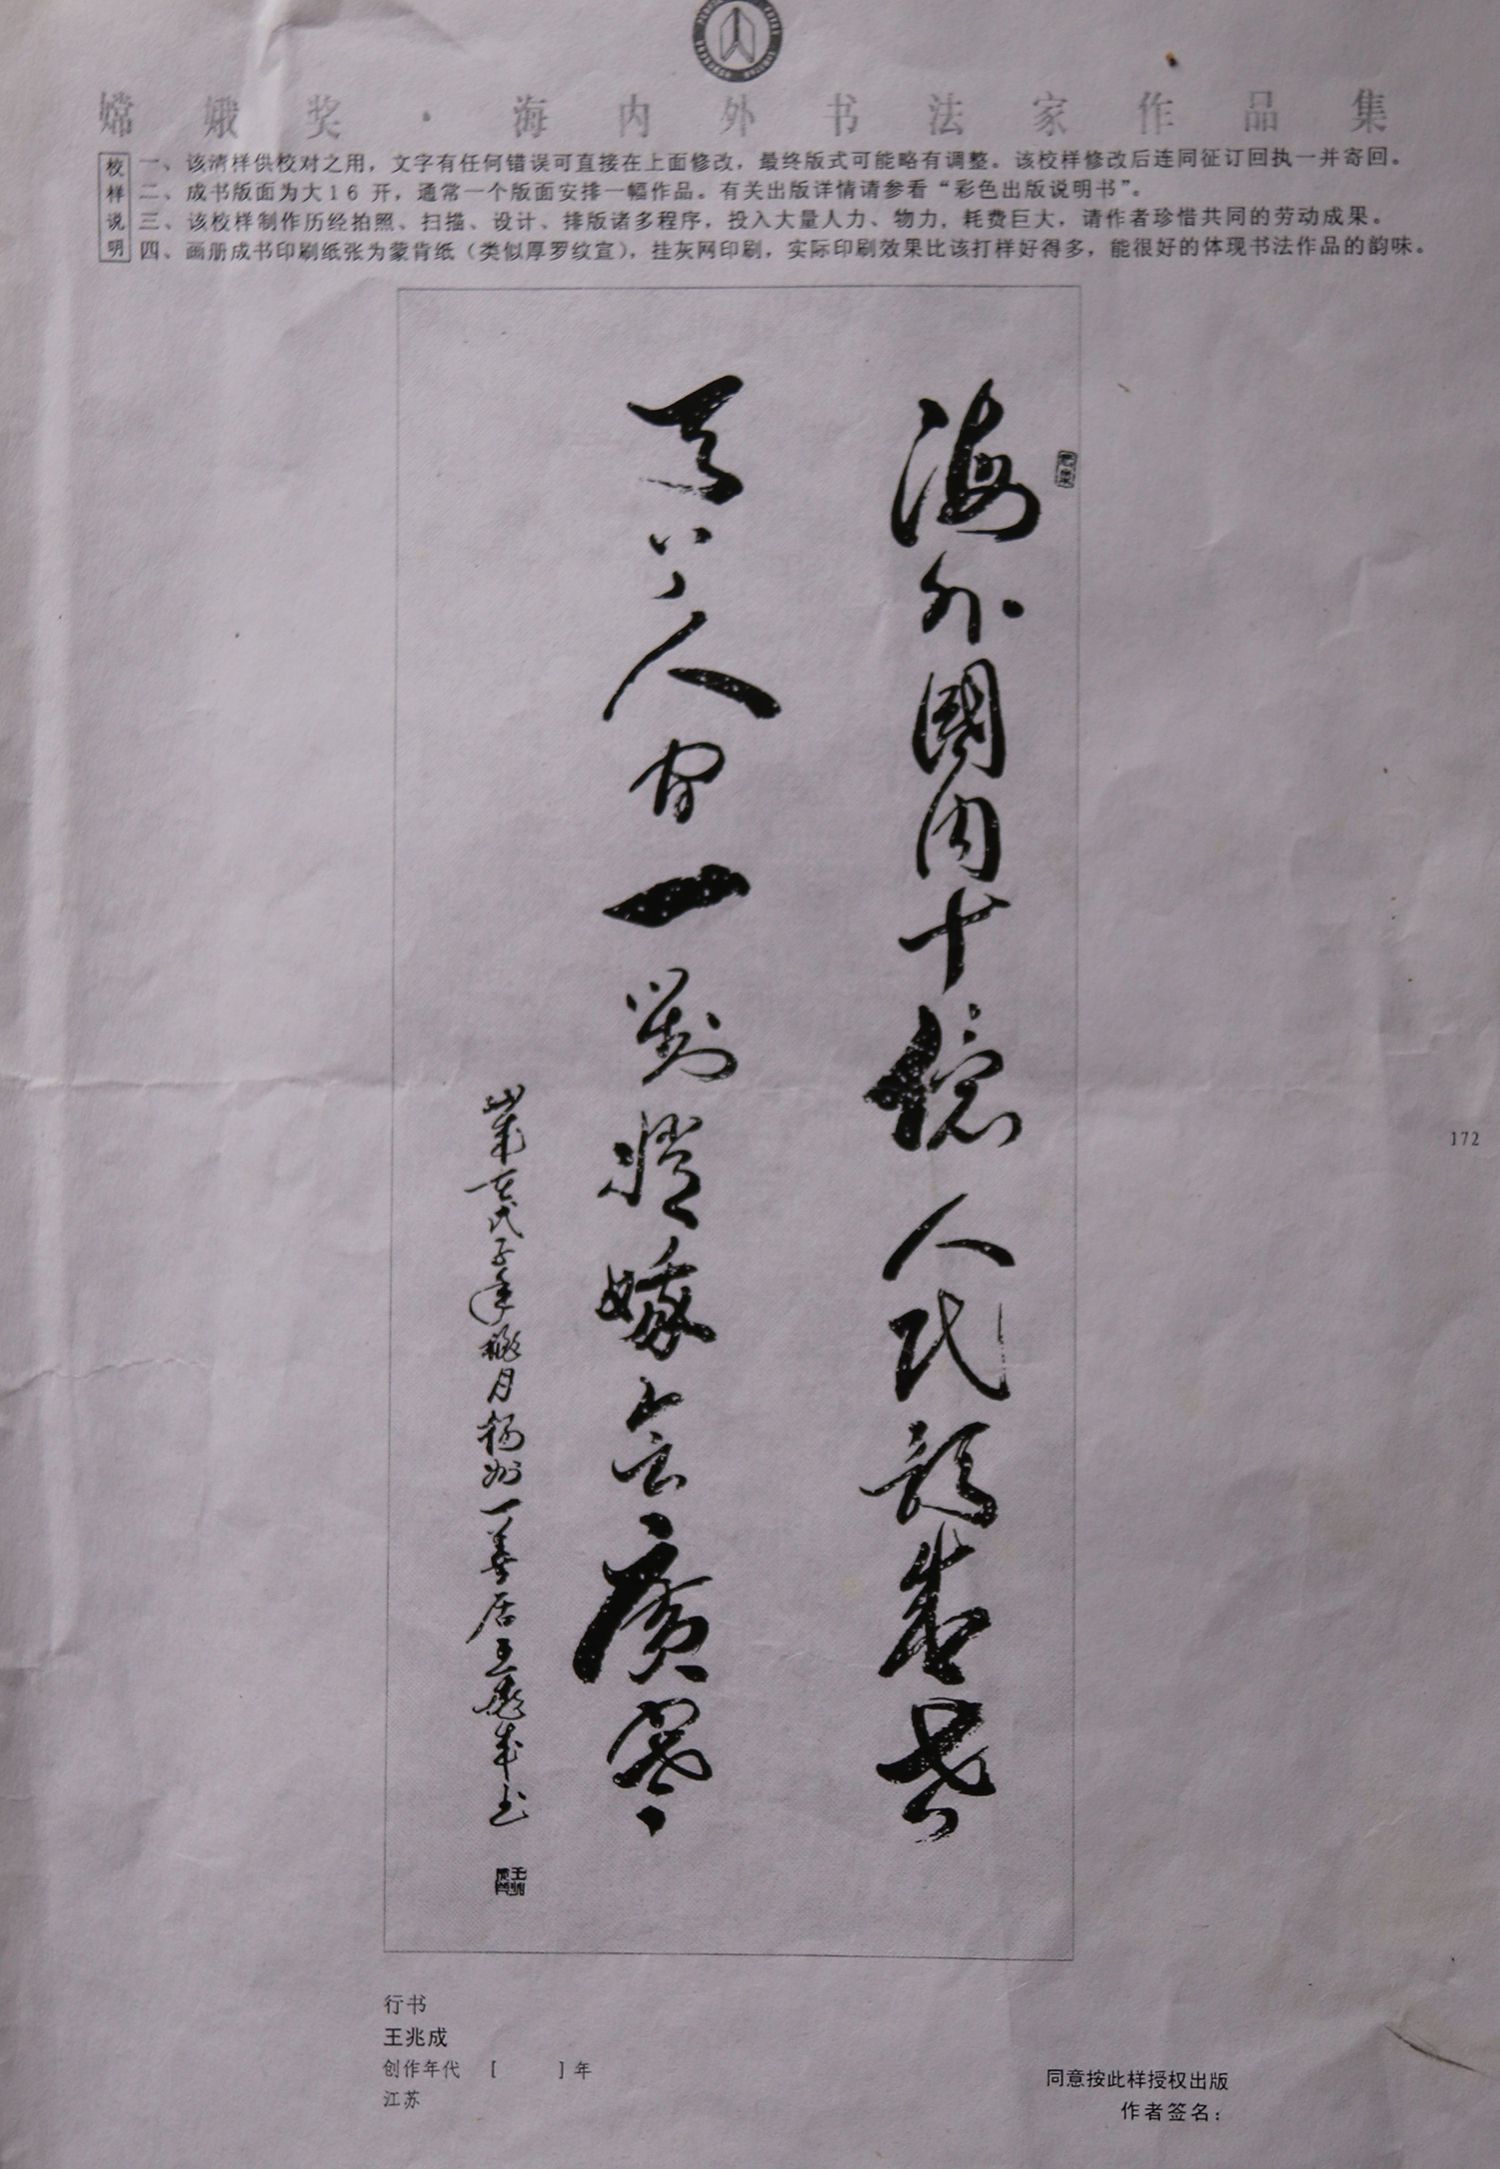 嫦娥奖·海内外书法家作品集
校样说明
一、该清样供校对之用，文字有任何错误可直接在上面修改，最终版式可能略有调整。该校样修改后连同征订回执一并寄回。
二、成书版面为大16开，通常一个版面安排一幅作品。有关出版详情请参看“彩色出版说明书”。
三、该校样制作历经拍照、扫描、设计、排版诸多程序，投入大量人力、物力，耗费巨大，请作者珍惜共同的劳动成果。
四、画册成书印刷纸张为蒙肯纸（类似厚罗纹宣），挂灰网印刷，实际印刷效果比该打样好得多，能很好的体现书法作品的韵味。
海外國内十億人民
天下人间一對嫦娥会廣寒
年桃月揚州一善居王兆成书
172
行书
王兆成
创作年代 [ ]年
江苏
同意按此样授权出版
作者签名：